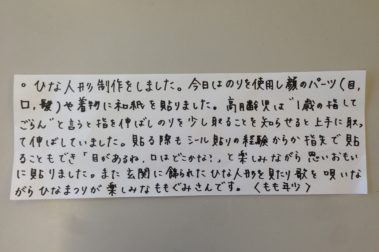 ○ ひな人形制作をしました。今日はのりを使用し顔のパーツ(目,
口,髪)や着物に和紙を貼りました。高月齢児は"1歳の指して
ごらん"と言うと指を伸ばしのりを少し取ることを知らせると上手に取っ
て伸ばしていました。貼る際もシール貼りの経験からか指先で貼
ることもでき「目があるね、口はどこかな?」と楽しみながら思いおもい
に貼りました。また玄関に飾られたひな人形を見たり歌を唄いな
がらひなまつりが楽しみなももぐみさんです。(もも